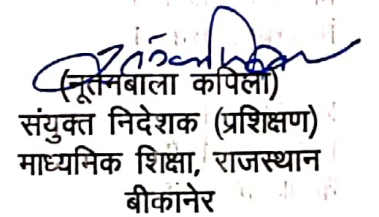 (नूतनबाला कपिला)
संयुक्त निदेशक (प्रशिक्षण)
माध्यमिक शिक्षा, राजस्थान
बीकानेर